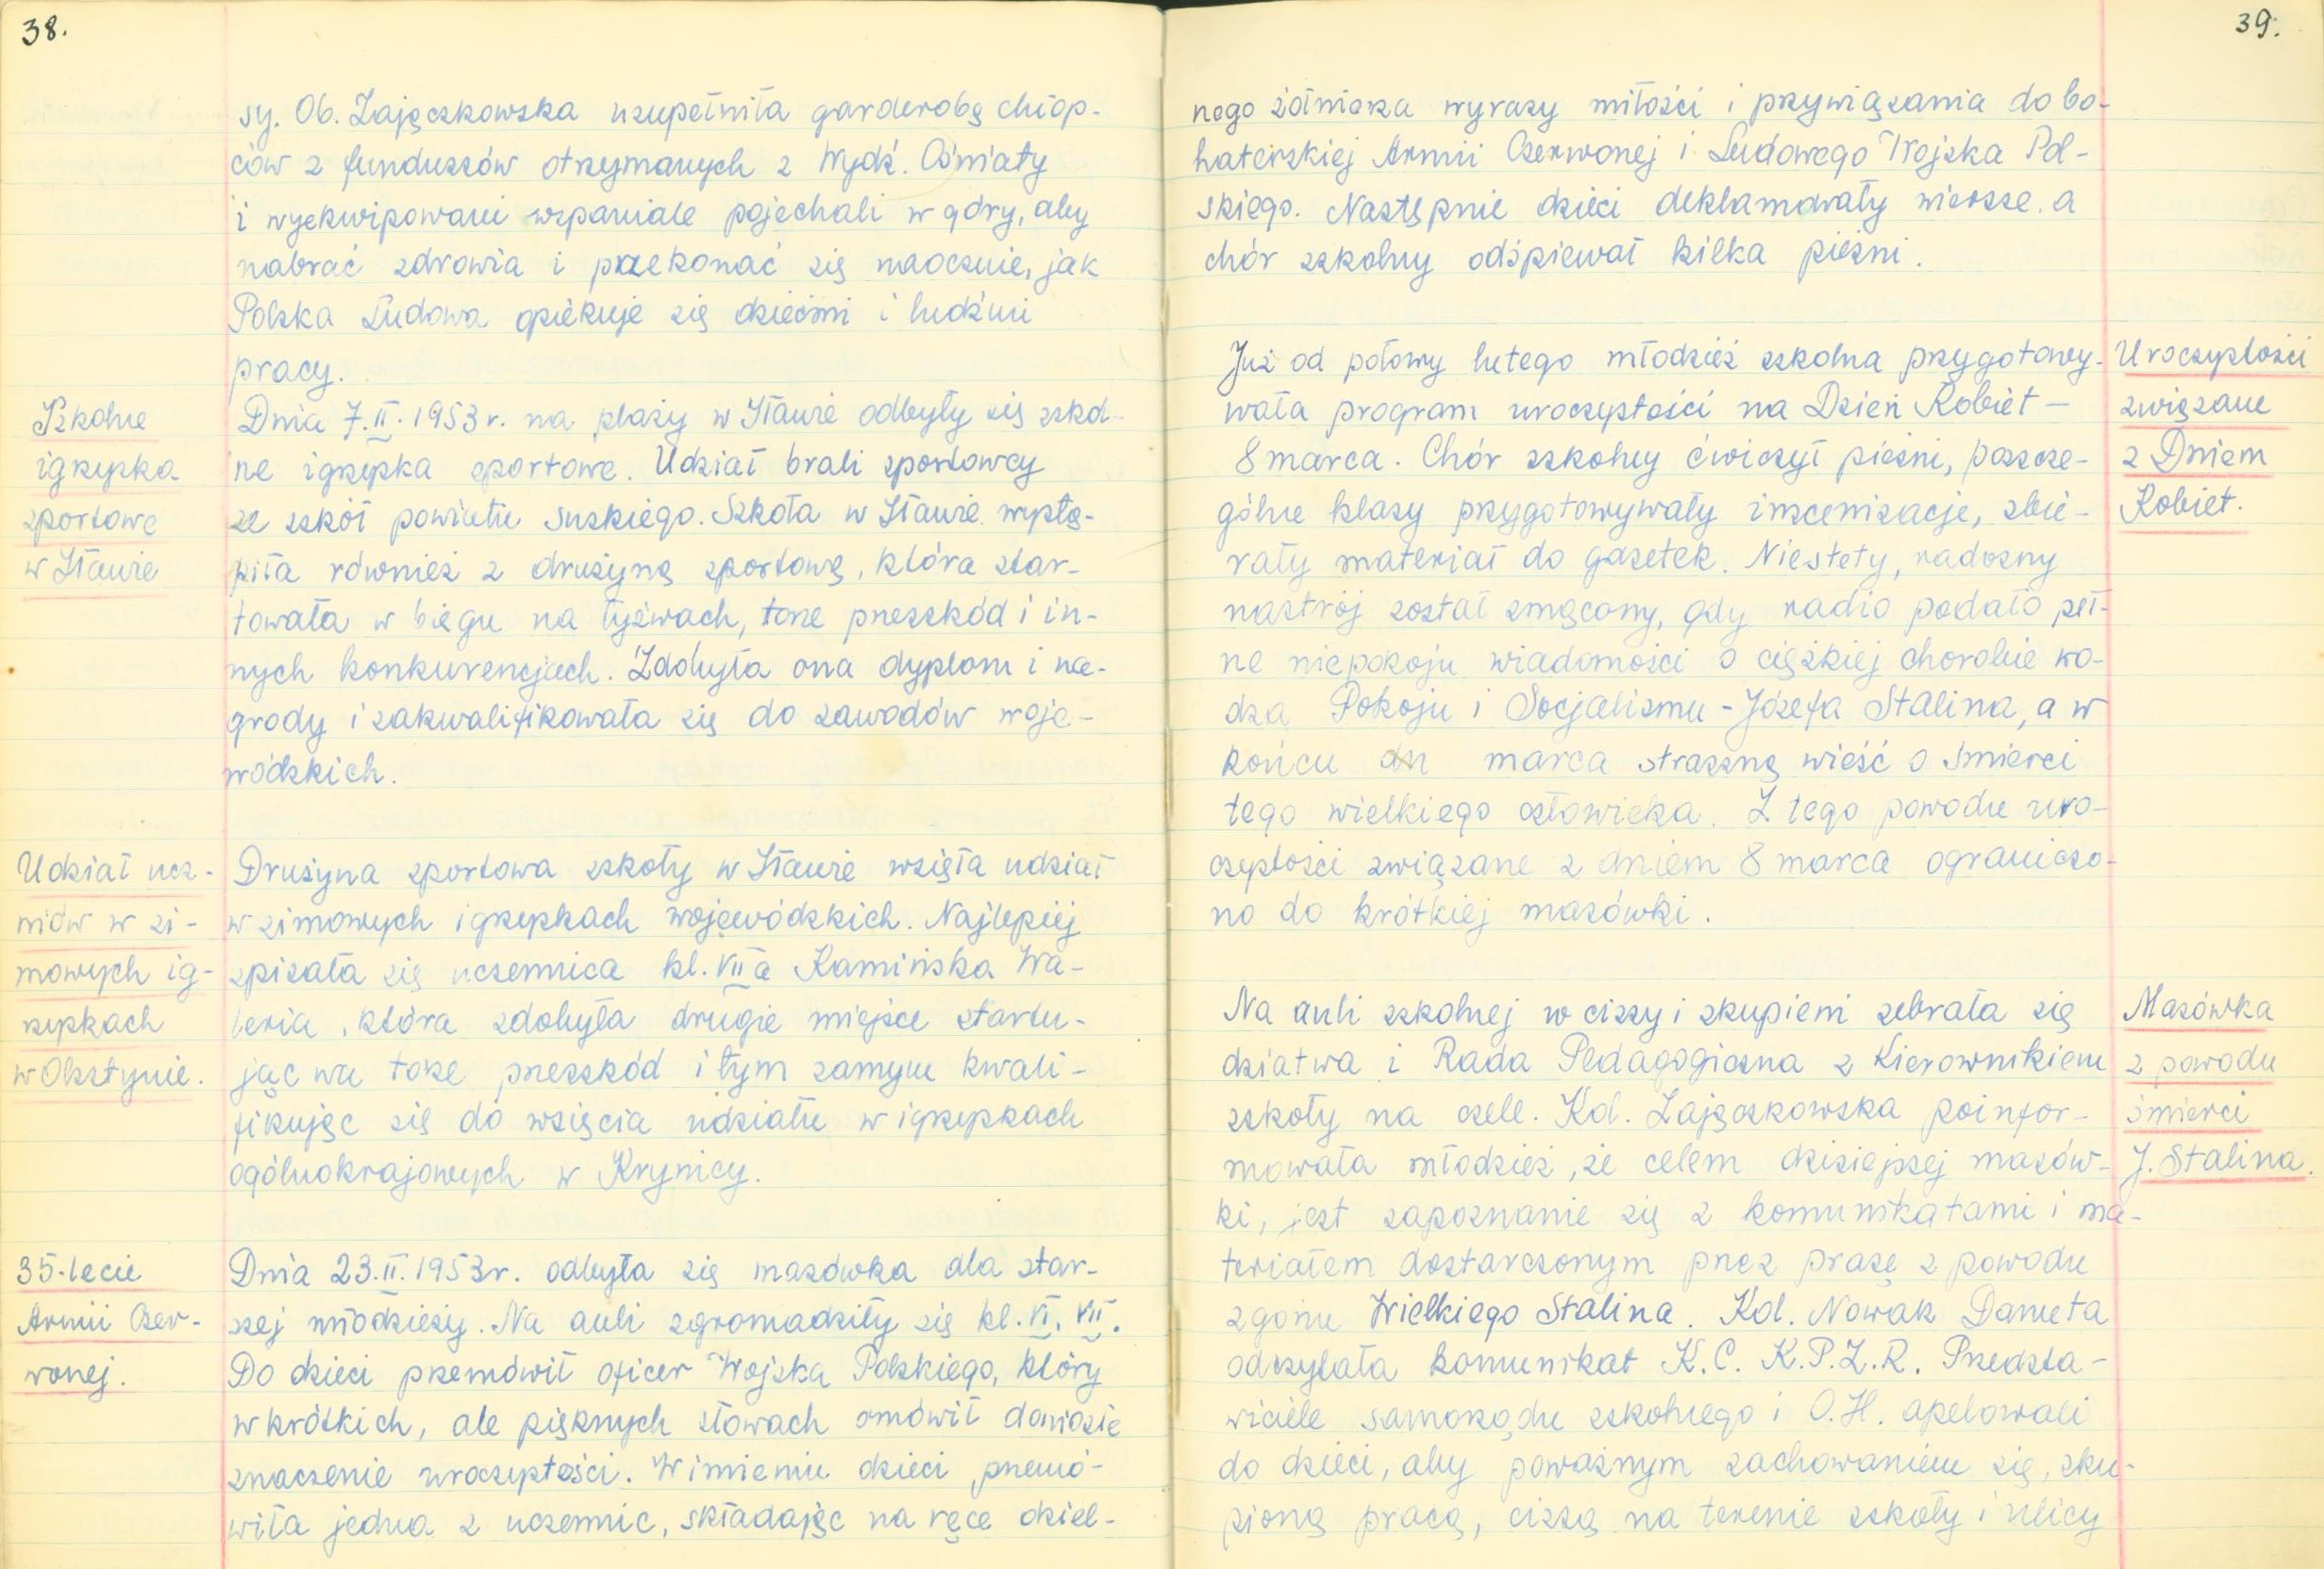 38.
sy. Ob. Zajączkowska uzupełniła garderobę chłop-
ców z funduszów otrzymanych z Wydź. Oświaty
i wyekwipowani wspaniale pojechali w góry, aby
nabrać zdrowia i przekonać się naocznie, jak
Polska Ludowa opiekuje się dziećmi i ludźmi
pracy.
Szkolne
igrzyska
sportowe
w Iławie
Dnia 7.II.1953r. na plaży w Iławie odbyły się szkol-
ne igrzyska sportowe. Udział brali sportowcy
ze szkół powiatu suskiego. Szkoła w Iławie wystą-
piła również z drużyną sportową, która star-
towała w biegu na łyżwach, torze przeszkód i in-
nych konkurencjach. Zdobyła ona dyplom i na-
grody i zakwalifikowała się do zawodów woje-
wódzkich.
Udział ucz-
niów w zi-
mowych ig-
rzyskach
w Olsztynie.
Drużyna sportowa szkoły w Iławie wzięła udział
w zimowych igrzyskach wojewódzkich. Najlepiej
spisała się uczennica kl. VIIa Kamińska Wa-
leria, która zdobyła drugie miejsce startu-
jąc na torze przeszkód i tym samym kwali-
fikując się do wzięcia udziału w igrzyskach
ogólnokrajowych w Krynicy.
35-lecie
Armii Czer-
wonej.
Dnia 23.II.1953r. odbyła się masówka dla star-
szej młodzieży. Na auli zgromadziły się kl. VI, VII.
Do dzieci przemówił oficer Wojska Polskiego, który
w krótkich, ale pięknych słowach omówił doniosłe
znaczenie uroczystości. W imieniu dzieci przemó-
wiła jedna z uczennic, składając na ręce dziel-
39.
nego żołnierza wyrazy miłości i przywiązania do bo-
haterskiej Armii Czerwonej i Ludowego Wojska Pol-
skiego. Następnie dzieci deklamowały wiersze, a
chór szkolny odśpiewał kilka pieśni.
Uroczystości
związane
z Dniem
Kobiet.
Już od połowy lutego młodzież szkolna przygotowy-
wała program uroczystości na Dzień Kobiet –
8 marca. Chór szkolny ćwiczył pieśni, poszcze-
gólne klasy przygotowywały inscenizacje, zbie-
rały materiał do gazetek. Niestety, radosny
nastrój został zmącony, gdy radio podało peł-
ne niepokoju wiadomości o ciężkiej chorobie wo-
dza Pokoju i Socjalizmu - Józefa Stalina, a w
końcu dn marca straszną wieść o śmierci
tego wielkiego człowieka. Z tego powodu uro-
czystości związane z dniem 8 marca ogranicza-
no do krótkiej masówki.
Masówka
z powodu
śmierci
J. Stalina.
Na auli szkolnej w ciszy i skupieni zebrała się
dziatwa i Rada Pedagogiczna z Kierownikiem
szkoły na czele. Kol. Zajączkowska poinfor-
mowała młodzież, że celem dzisiejszej masów-
ki, jest zapoznanie się z komunikatami i ma-
teriałem dostarczonym przez prasę z powodu
zgonu Wielkiego Stalina. Kol. Nowak Danuta
odczytała komunikat K.C. K.P.Z.R. Przedsta-
wiciele samorządu szkolnego i O.H. apelowali
do dzieci, aby poważnym zachowaniem się, sku-
pioną pracą, ciszą na terenie szkoły i ulicy